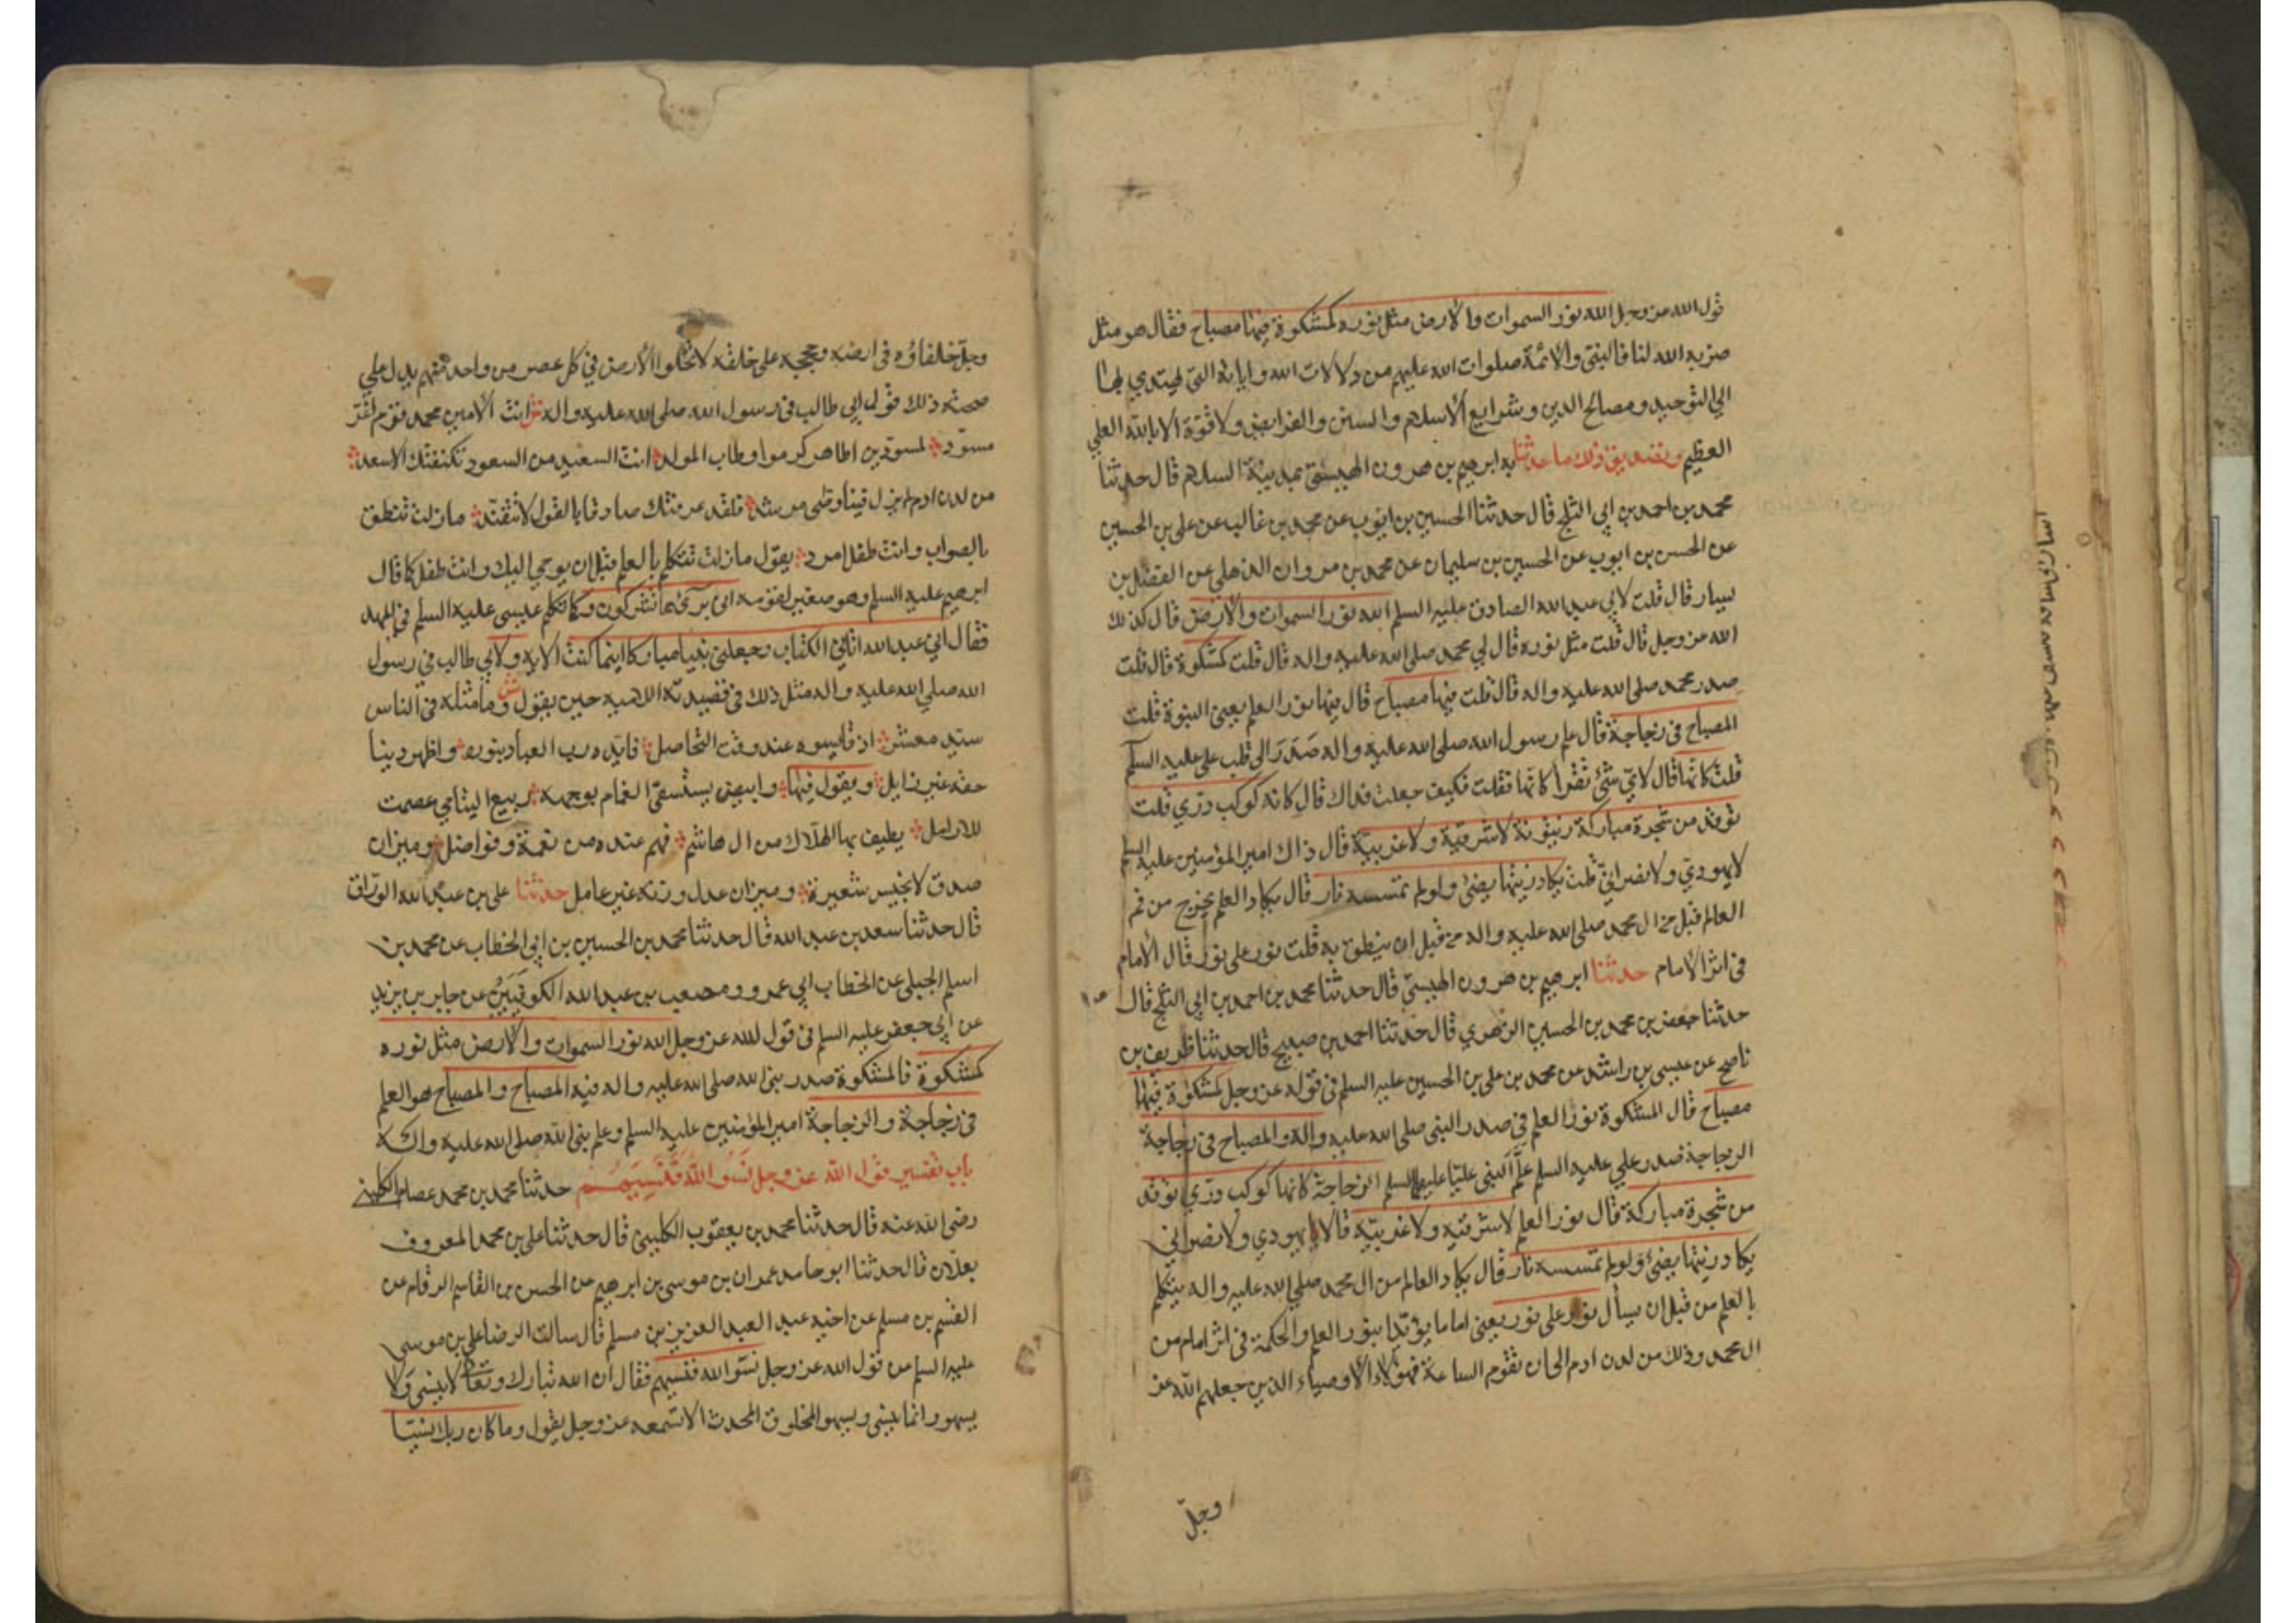 قول الله عز وجل الله نور السموات والارض مثل نوره كمشكوة فيها مصباح فقال هو مثل
ضربه الله لنا فالنبي والائمة صلوات الله عليهم من دلالات الله واياته التي يهتدي بها
الي التوحيد ومصالح الدين وشرايع الاسلام والسنن والفرايض ولا قوة الا بالله العلي
العظيم وتصديق ذلك ما حدثنا به ابرهيم بن هرون الهيستي بمدينة السلام قال حدثنا
محمد بن احمد بن ابي الثلج قال حدثنا الحسين بن ايوب عن محمد بن غالب عن علي بن الحسين
عن الحسن بن ايوب عن الحسين بن سليمان عن محمد بن مروان الذهلي عن الفضل بن
يسار قال قلت لابي عبد الله الصادق عليه السلم الله نور السموات والارض قال كذلك
الله عز وجل قال قلت مثل نوره قال لي محمد صلى الله عليه واله قال قلت كمشكوة قال قلت
صدر محمد صلى الله عليه واله قال قلت فيها مصباح قال فيها نور العلم يعني النبوة قلت
المصباح في زجاجة قال علم رسول الله صلى الله عليه واله صدر الى قلب علي عليه السلم
قلت كانها قال لاي شئ تقرا كانها فقلت فكيف جعلت فداك قال كانه كوكب دري قلت
توقد من شجرة مباركة زيتونة لا شرقية ولا غربية قال ذاك امير المؤمنين عليه السلم
لا يهودي ولا نصراني قلت يكاد زيتها يضئ ولو لم تمسسه نار قال يكاد العلم يخرج من فم
العالم قبل من ال محمد صلى الله عليه واله من قبل ان ينطق به قلت نور على نور قال الامام
في اثر الامام حدثنا ابرهيم بن هرون الهيستي قال حدثنا محمد بن احمد بن ابي الثلج قال
حدثنا جعفر بن محمد بن الحسين الزهري قال حدثنا احمد بن صبيح قال حدثنا ظريف بن
ناصح عن عيسى بن راشد عن محمد بن علي بن الحسين عليه السلم في قوله عز وجل كمشكوة فيها
مصباح قال المشكوة نور العلم في صدر النبي صلى الله عليه واله والمصباح في زجاجة
الزجاجة صدر علي عليه السلم علم النبي عليا عليهما السلم الزجاجة كانها كوكب دري توقد
من شجرة مباركة قال نور العلم لا شرقية ولا غربية قال لا يهودي ولا نصراني
يكاد زيتها يضئ ولو لم تمسسه نار قال يكاد العالم من ال محمد صلى الله عليه واله يتكلم
بالعلم من قبل ان يسأل نور على نور يعني اماما مؤيدا بنور العلم والحكمة في اثر امام من
ال محمد وذلك من لدن ادم الى ان تقوم الساعة فهؤلاء الاوصياء الذين جعلهم الله عز
وجل
وجل خلفاؤه في ارضه وحججه على خلقه لا تخلوا الارض في كل عصر من واحد منهم يدل على
صحة ذلك قول ابي طالب في رسول الله صلى الله عليه واله انت الامين محمد قوم اغر
مسود لمسودين اطاهر كرموا وطاب المولد انت السعيد من السعود تكنفتك الاسعد
من لدن ادم لم يزل فينا وصي مرشد فلقد عرفتك صادقا بالقول لا تتفند ما زلت تنطق
بالصواب وانت طفل امرد يقول ما زلت تتكلم بالعلم قبل ان يوحي اليك وانت طفل كما قال
ابرهيم عليه السلم وهو صغير لقومه اني بري مما تشركون وكما تكلم عيسى عليه السلم في المهد
فقال اني عبد الله اتاني الكتاب وجعلني نبيا مباركا اينما كنت الاية ولابي طالب في رسول
الله صلى الله عليه واله مثل ذلك في قصيدته اللامية حين يقول وما مثله في الناس
سيد معشر اذ قايسوه عند وقت التحاصل فايده رب العباد بنوره واظهر دينا
حقه غير زايل ويقول فيها وابيض يستسقي الغمام بوجهه ربيع اليتامي عصمت
للارامل يطيف بها الهلاك من ال هاشم فهم عنده من نعمة وفواضل وميزان
صدق لا يخيس شعيرة وميزان عدل وزنه غير عامل حدثنا علي بن عبد الله الوراق
قال حدثنا سعد بن عبد الله قال حدثنا محمد بن الحسين بن ابي الخطاب عن محمد بن
اسلم الجبلي عن الخطاب ابي عمرو ومصعب بن عبد الله الكوفيين عن جابر بن يزيد
عن ابي جعفر عليه السلم في قول الله عز وجل الله نور السموات والارض مثل نوره
كمشكوة فالمشكوة صدر نبي الله صلى الله عليه واله فيه المصباح والمصباح هو العلم
في زجاجة والزجاجة امير المؤمنين عليه السلم وعلم نبي الله صلى الله عليه واله
باب تفسير قول الله عز وجل نسوا الله فنسيهم حدثنا محمد بن محمد عصام الكليني
رضي الله عنه قال حدثنا محمد بن يعقوب الكليني قال حدثنا علي بن محمد المعروف
بعلان قال حدثنا ابو حامد عمران بن موسى بن ابرهيم عن الحسن بن القاسم الرقام عن
القسم بن مسلم عن اخيه عبد العزيز بن مسلم قال سالت الرضا علي بن موسى
عليه السلم عن قول الله عز وجل نسوا الله فنسيهم فقال ان الله تبارك وتعالى لا ينسى ولا
يسهو وانما ينسى ويسهو المخلوق المحدث الا تسمعه عز وجل يقول وما كان ربك نسيا